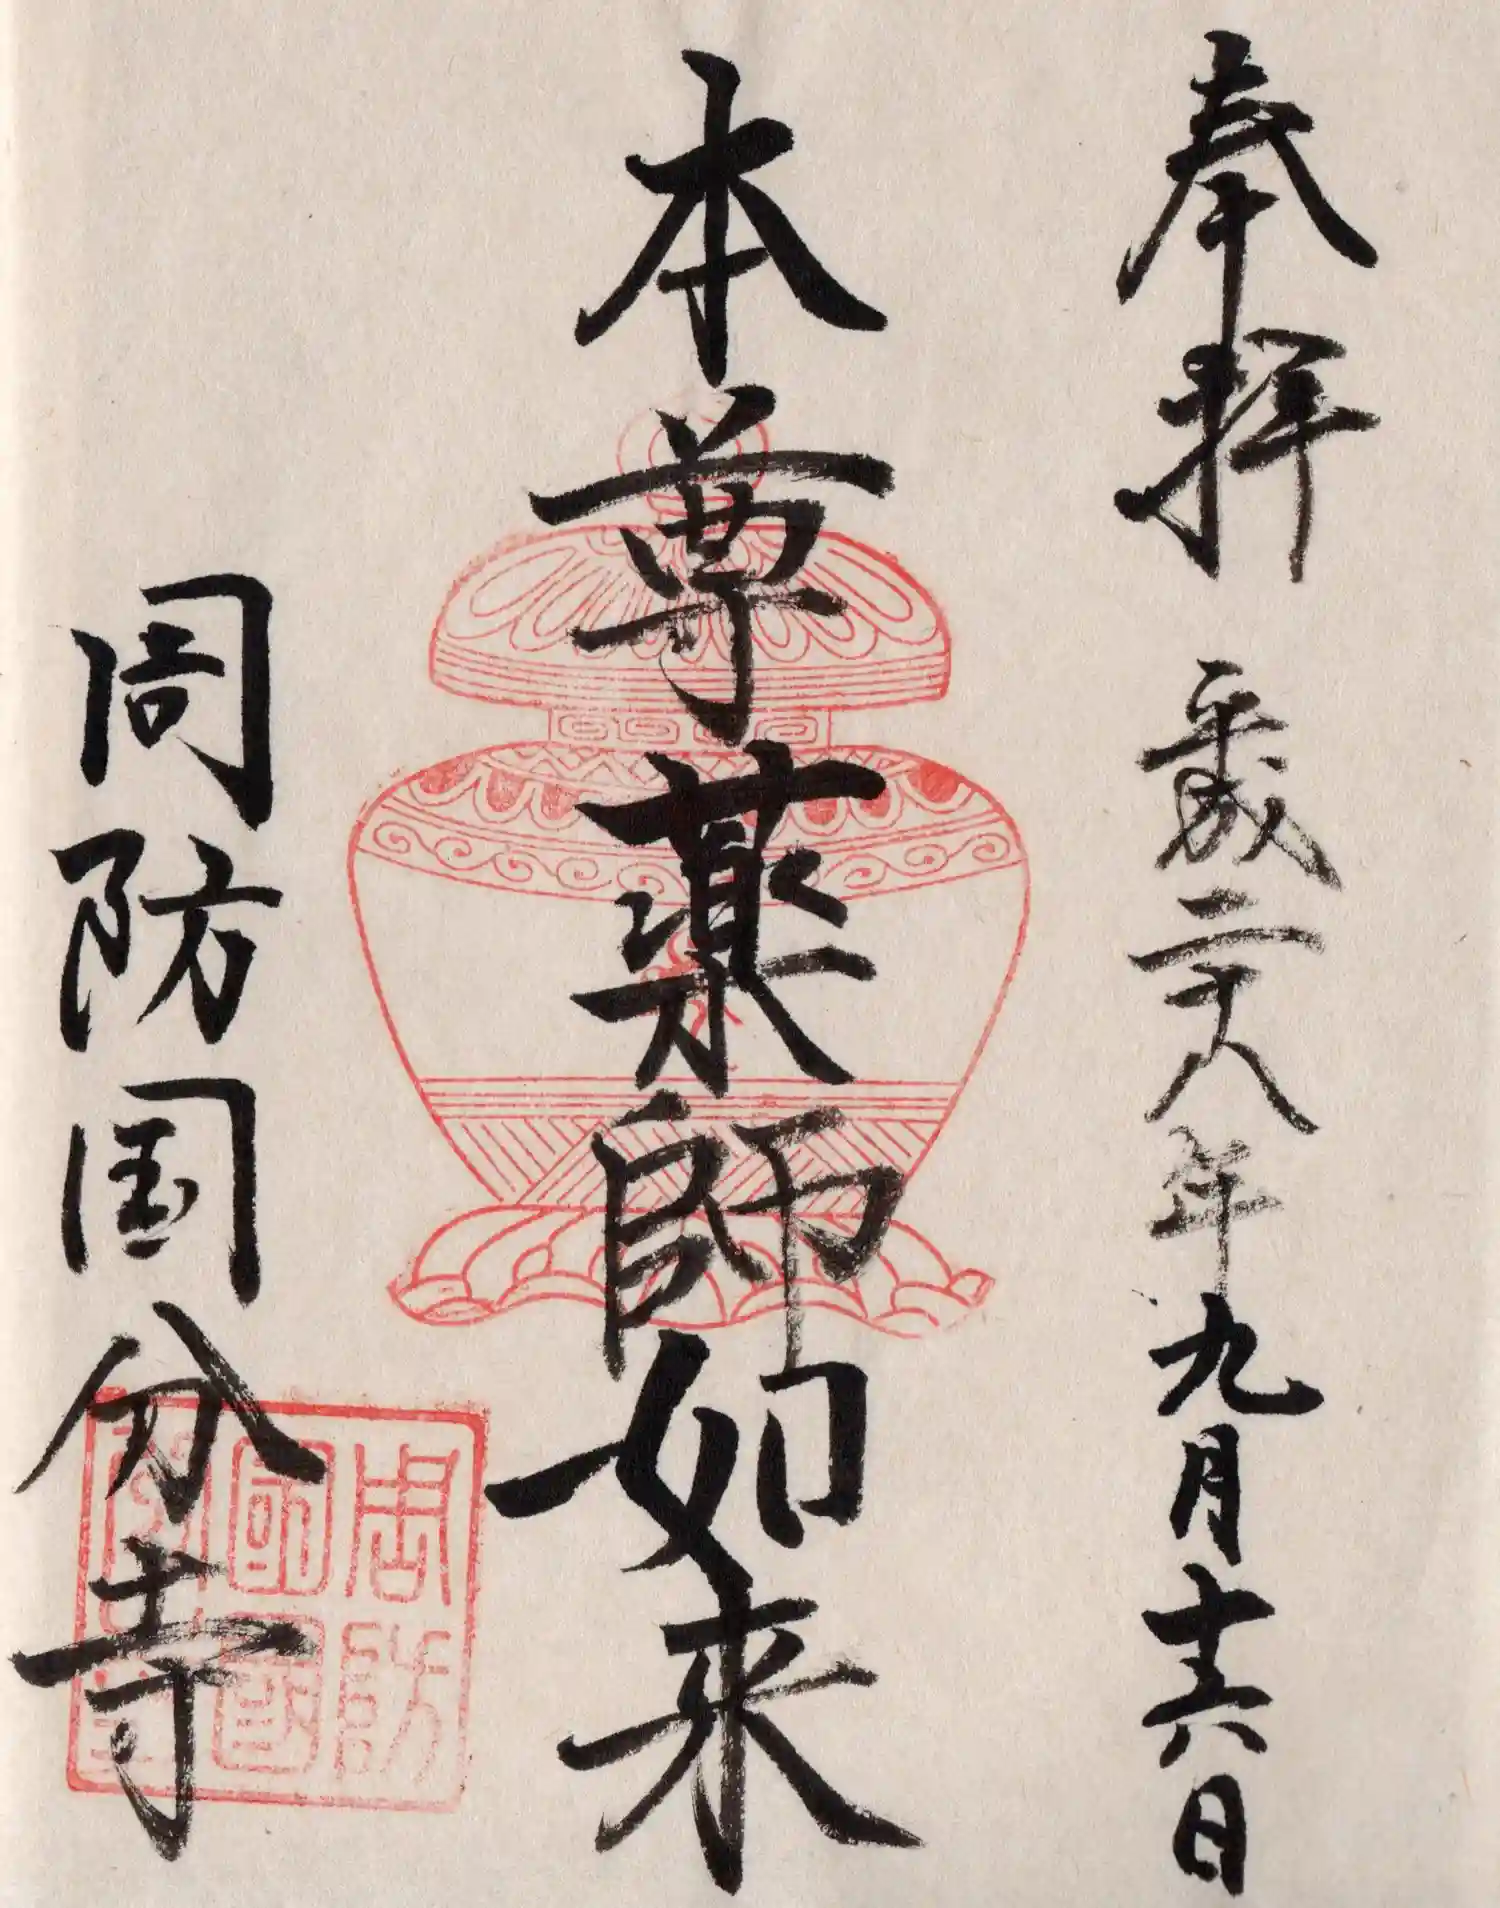 奉拝 平成二十八年九月十六日
本尊薬師如来
周防国分寺